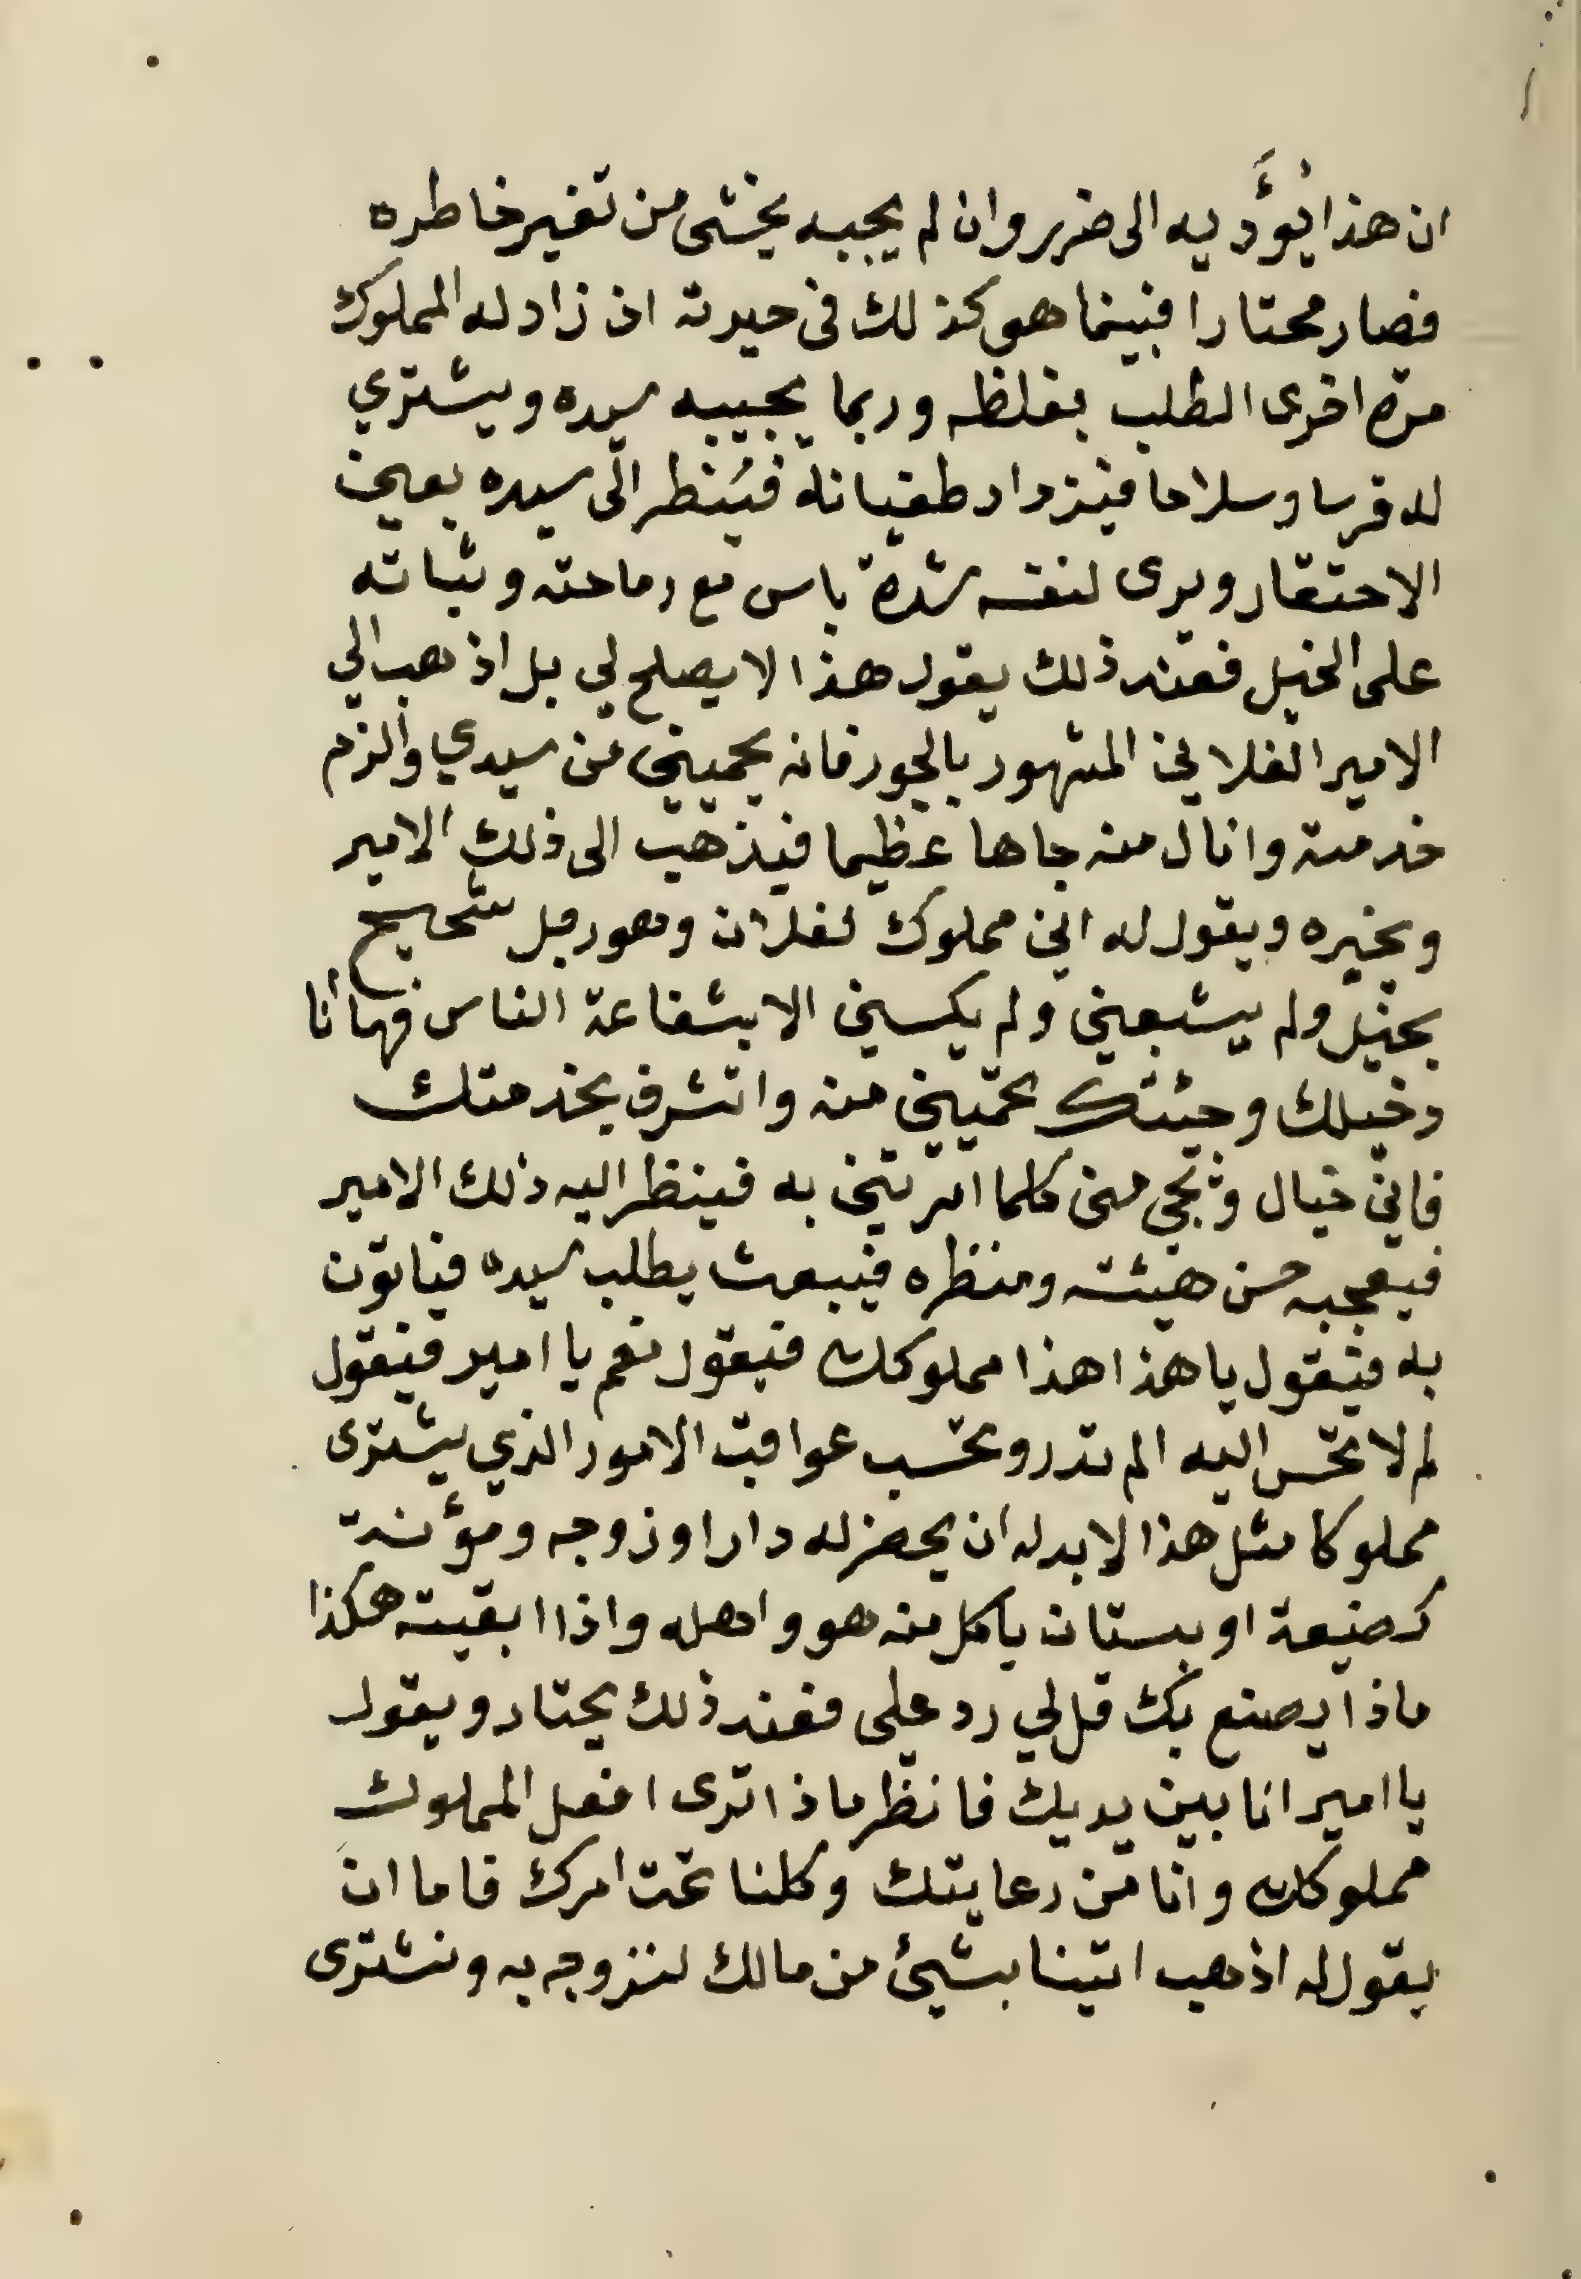 ان هذا يُؤَديه الى ضرر وان لم يجيبه يخشى من تغير خاطره
فصار محتارا فبينما هو كذلك في حيرته اذ زاد له المملوك
مرة اخرى الطلب بغلظه وربما يجيبه سيده ويشتري
له فرسا وسلاحا فيزداد طغيانه فينظر الى سيده بعين
الاحتقار ويرى لنفسه شدة باس مع رماحته وثباته
على الخيل فعند ذلك يقول هذا لا يصلح لي بل اذهب الي
الامير الفلاني المشهور بالجور فانه يحميني من سيدي وألزم
خدمته وانال منه جاها عظيما فيذهب الى ذلك الامير
ويخبره ويقول له اني مملوك لفلان وهو رجل شحيح
بخيل ولم يشبعني ولم يكسيني الا بشفاعة الناس فها أنا
دخيلك وجيئتك تحميني منه واتشرف بخدمتك
فاني خيال ويجي مني كلما امرتني به فينظر اليه ذلك الامير
فيعجبه حسن هيئته ومنظره فيبعث يطلب سيده فياتون
به فيقول يا هذا هذا مملوكك فيقول نعم يا امير فيقول
لم لا تحسن اليه الم تدر وتحسب عواقب الامور الذي يشترى
مملوكا مثل هذا لابد له ان يحضر له دارا وزوجه ومؤنة
كضيعة او بستان ياكل منه هو واهله واذا ابقيته هكذا
ماذا يصنع بك قل لي رد على فعند ذلك يحتار ويقول
يا امير انا بين يديك فانظر ماذا ترى افعل المملوك
مملوكك وانا من رعايتك وكلنا تحت امرك فاما ان
يقول له اذهب اتينا بشيئ من مالك لنزوجه به ونشترى